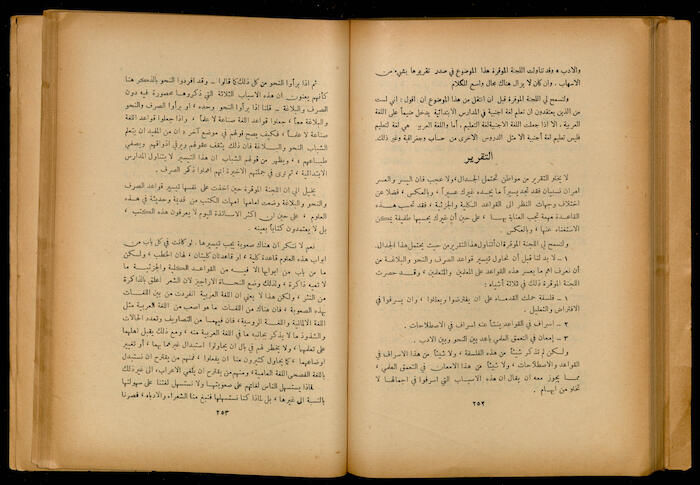 والادب » وقد تناولت اللجنة الموقرة هذا الموضوع في صدر تقريرها بشيء من
الاسهاب . وان كان لا يزال هناك مجال واسع للكلام
ولتسمح لي اللجنة الموقرة قبل ان انتقل من هذا الموضوع ان اقول : اني لست
من الذين يعتقدون ان تعلم لغة اجنبية في المدارس الابتدائية يدخل ضيماً على اللغة
العربية . الا اذا جعلت اللغة الاجنبية لغة التعليم . أما واللغة العربية هي لغة لتعليم
فليس تعليم لغة أجنبية الا مثل الدروس الاخرى من حساب وجغرافية وغير ذلك.
التقرير
لا يخلو التقرير من مواطن تحتمل الجدال، ولا عجب فان اليسر والعسر
امران نسبيان فقد تجد يسيراً ما يجده غيرك عسيراً ، وبالعكس ، فضلا عن
اختلاف وجهات النظر الى القواعد الكلية والجزئية ، فقد تحسب هذه
القاعدة مهمة تجب العناية بها ، على حين أن غيرك يحسبها طفيفة يمكن
الاستغناء عنها ، وبالعكس .
ولتسمح لي اللجنة الموقرة فان أتناول هذا التقرير من حيث يحتمل هذا الجدال.
١ – لا بد لنا قبل أن نحاول تيسير قواعد الصرف والنحو والبلاغة من
أن نعرف اهم ما يعسر هذه القواعد على المعلمين والمتعلمين ، وقد حصرت
اللجنة الموقرة ذلك في ثلاثة أشياء :
١ – فلسفة حملت القدماء على ان يفترضوا ويعللوا ، وان يسرفوا في
الافتراض والتعليل .
٢ – اسراف في القواعد ينشأ عنه اسراف في الاصطلاحات .
٣ – إمعان في التعمق العلمي باعد بين النحو وبين الادب .
ولكن لم تذكر شيئاً من هذه الفلسفة ، ولا شيئاً من هذا الاسراف في
القواعد والاصطلاحات ، ولا شيئاً من هذا الامعان في التعمق العلمي ،
مما يجوز معه ان يقال ان هذه الاسباب التي اسرفوا في اجمالها لا
تخلو من ابهام .
٢٥٢
ثم اذا برأوا النحو من كل ذلك كما قالوا – وقد افردوا النحو بالذكر هنا
كأنهم يعنون ان هذه الاسباب الثلاثة التي ذكروها محصورة فيه دون
الصرف والبلاغة – قلنا اذا برأوا النحو وحده ، او برأوا الصرف والنحو
والبلاغة معاً ، جعلوا قواعد اللغة صناعة لا علماً ، واذا جعلوا قواعد اللغة
صناعة لا علماً ، فكيف يصح قولهم في موضع آخر ، ان من المفيد ان يتعلم
الشباب النحو والبلاغة فان ذلك يثقف عقولهم ويرقي اذواقهم ويصفي
طباعهم ، ويظهر من قولهم الشباب ان هذا التيسير لا يتناول المدارس
الابتدائية ، ثم ترى في جملتهم الاخيرة انهم اهملوا ذكر الصرف .
يخيل الي ان اللجنة الموقرة حين اخذت على نفسها تيسير قواعد الصرف
والنحو والبلاغة وضعت امامها امهات الكتب من قديمة وحديثة في هذه
العلوم ، على حين ان اكثر الاساتذة اليوم لا يعرفون هذه الكتب ،
بل لا يعتمدون كتاباً بعينه .
نعم لا ننكر ان هناك صعوبة يجب تيسيرها . لو كانت في كل باب من
ابواب هذه العلوم قاعدة كلية ، او قاعدتان كليتان ، لهان الخطب ، ولكن
ما من باب من ابوابها الا فيه من القواعد الكلية والجزئية ما
لا تعيه ذاكرة ، ولذلك وضع النحاة الاراجيز لان الشعر اعلق بالذاكرة
من النثر ، ولكن هذا لا يعني ان اللغة العربية انفردت من بين اللغات
بهذه الصعوبة ، فان هناك من اللغات ما هو اصعب من اللغة العربية مثل
اللغة الالمانية واللغة الروسية، فان فيهما من التصاريف وتعدد الحالات
والشذوذ ما لا يذكر بجانبه ما في اللغة العربية منه ، ومع ذلك يقبل اهلها
على تعلمها ، ولا يخطر لهم في بال ان يحاولوا استبدال غيرها بها ، أو تغيير
اوضاعها ، كما يحاول كثيرون هنا ان يفعلوا ، فمنهم من يقترح ان نستبدل
باللغة الفصحى اللغة العامية، ومنهم من يقترح ان يلغي الاعراب، الى غير ذلك
فاذا يستسهل الناس لغاتهم على صعوبتها ولا نستسهل لغتنا على سهولتها
بالنسبة الى غيرها ، بل لماذا كنا نستسهلها فنبغ منا الشعراء والادباء ، فصرنا
٢٥٣